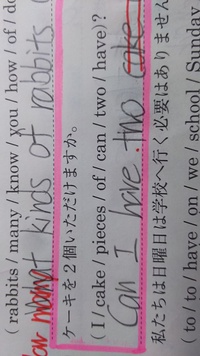 ( rabbits / many / know / you / how / of / do
kinds of rabbits (
ケーキを2個いただけますか。
( I / cake / pieces / of / can / two / have )?
Can I have two cake
私たちは日曜日は学校へ行く必要はありません
( to / to / have / on / we / school / Sunday